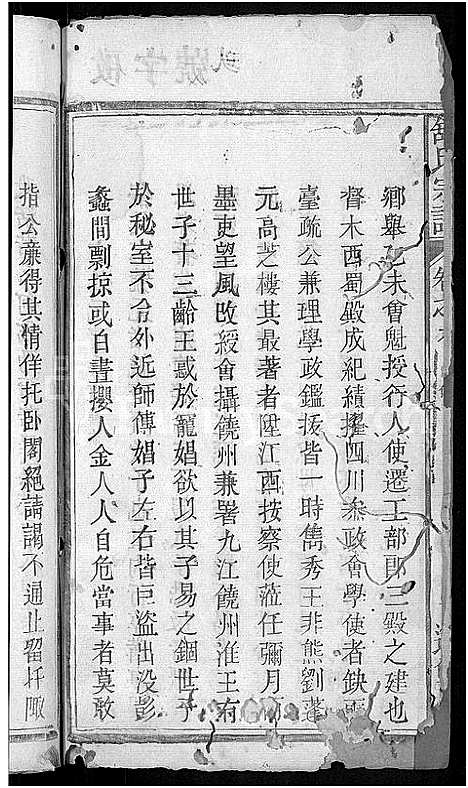 號字破
舒氏宗譜 卷之
鄉舉乙未會魁授行人使遷工部郎三殿之建也
督木西蜀殿成紀績擢四川叅政會學使者缺
臺疏公兼理學政鑑拔皆一時雋秀王非熊劉蓬
元高芝樓其最著者陞江西按察使蒞任彌月
墨吏望風改綬會攝饒州兼署九江饒州淮王有
世子十三齡王惑於寵娼欲以其子易之錮世子
於秘室不令外近師傅娼子左右皆巨盜出没彭
蠡間剽掠或白晝攫人金人人自危當事者莫敢
指公亷得其情佯托卧閣絕請謁不通止留圩陬